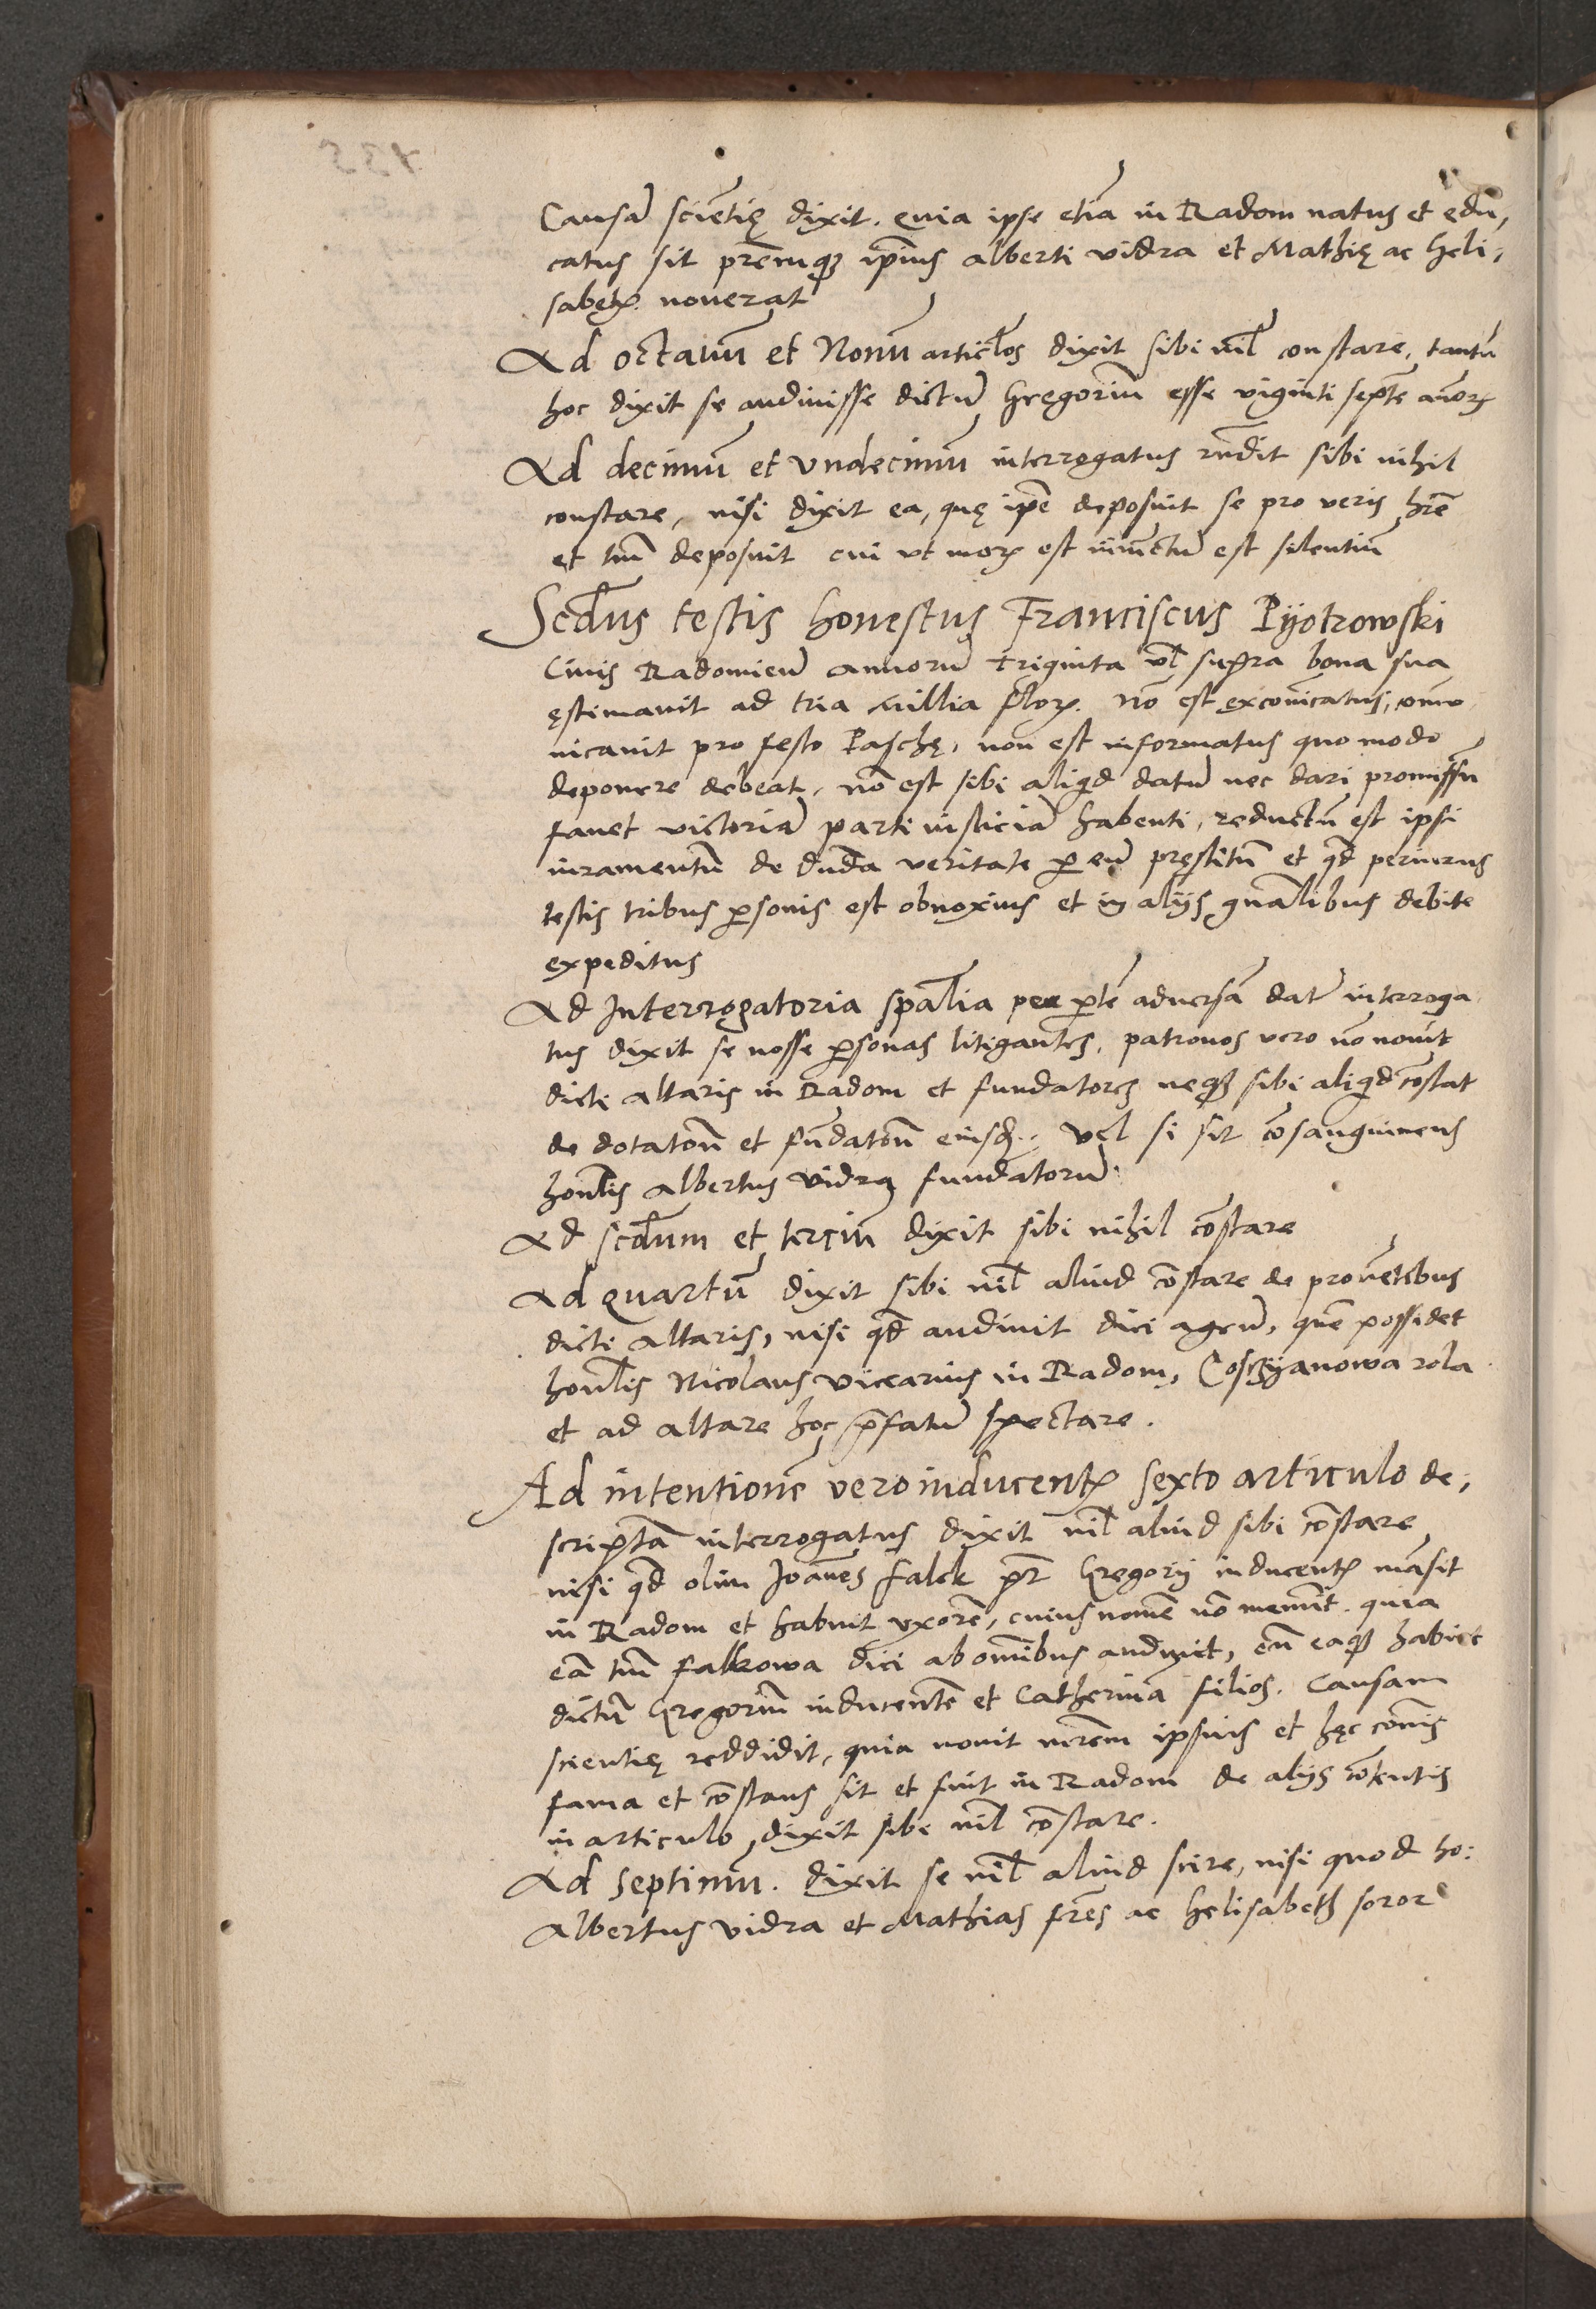 Causã sciẽtię dixit. quia ipse etiã in Radom natus et edu,
catus sit prẽmq₃ ipĩus alberti vidra et Mathię ac heli,
sabętꝫ. nouerat
Ad octauũ et Nonũ articłos dixit sibi nił constare, tantũ
hoc dixit se audiuisse dictũ Gregoriũ esse viginti septẽ añorꝫ
Ad decimũ et vndecimũ interrogatus rñdit sibi nihil
constare, nisi dixit ea, quę ipẽ deposuit se pro veris hrẽ
et tñ deposuit cui vt morꝫ est iniũctũ est silentiũ
Scdus testis honestus Franciscus Pyotrowski
Ciuis Radomieñ annorũ triginta vł supra bona sua
ęstimauit ad tria Millia florꝫ. nõ est excõicatus, cõmu
nicauit pro festo Paschę, non est informatus quo modo
deponere debeat, nõ est sibi aliqd datũ nec dari promissũ
fauet victoriã parti iusticiã habenti, reductũ est ipsi
iuramentũ de dnda veritate p eũ pręstitũ et qd periurus
testis tribus psonis est obnoxius et in alijs gnãlibus debite
expeditus
Ad Interrogatoria spãlia per ptẽ aduersã dať interroga
tus dixit se nosse psonas litigantes, patronos vero nõ nouit
dicti altaris in Radom et fundatores neq₃ sibi aliqd cõstat
de dotatõñ et fũdatõñ eiusd. Vel si sit cõsanguineus
honłis Albertus vidra fundatorũ.
Ad scdum et terciũ dixit sibi nihil cõstare
Ad quartũ dixit sibi nił aliud cõstare de prouẽtibus
dicti altaris, nisi qd audiuit dici agrũ, quẽ possidet
honłis Nicolaus vicearius in Radom, Coszyanowa rola
et ad altare hoc p̃fatũ spectare.
Ad intentionẽ vero inducentꝫ sexto articulo de,
scriptã interrogatus dixit nił aliud sibi cõstare
nisi qd olim Joãnes falck pr̃ Gregorij inducentꝫ mãsit
in Radom et habuit vxorẽ, cuius nomẽ nõ meminit. quia
eã tñ falkowa dici ab omĩbus audiuit, eũ eaq₃ habuit
dictũ Gregoriũ inducentẽ et Catherinã filios. Causam
scientię reddidit, quia nouit mr̃em ipsius et hęc cõmis
fama et cõstans sit et fuit in Radom de alijs cõtentis
in articulo, dixit sibi nił cõstare.
Ad septimũ. dixit se nił aliud scire, nisi quod ho:
Albertus vidra et Mathias frẽs ac helisabeth soror